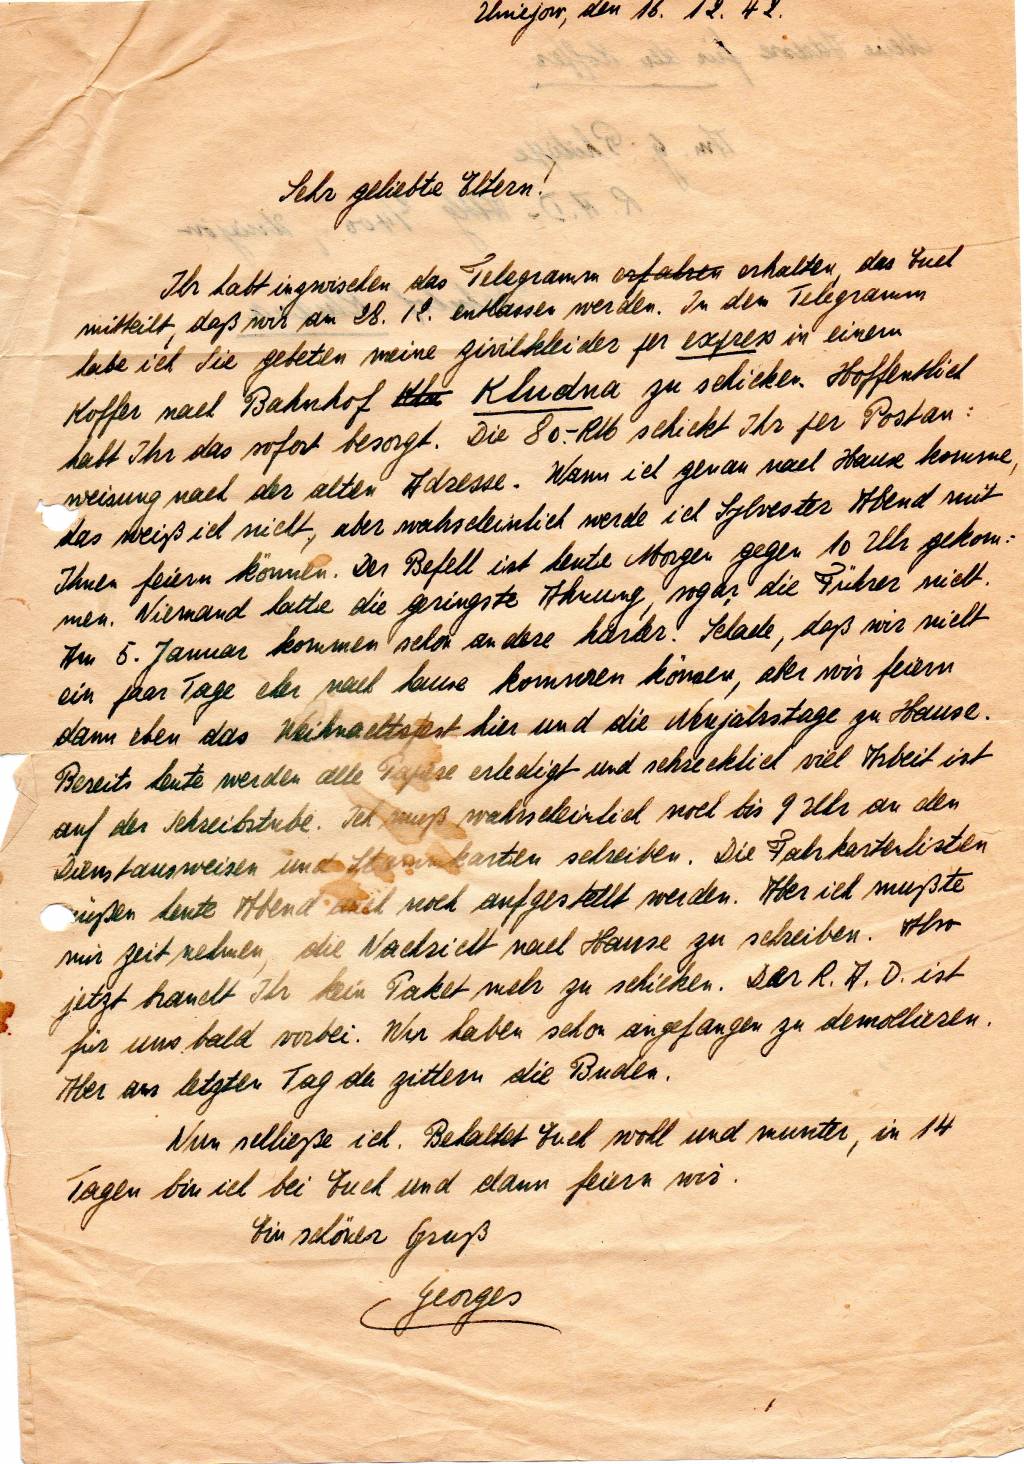 Uniejow, den 16. 12. 42.
Sehr geliebte Eltern!
Ihr habt inzwischen das Telegramm erfahren erhalten, das Euch
mitteilt, daß wir am 28. 12. entlassen werden. In dem Telegramm
habe ich Sie gebeten meine Zivilkleider per express in einem
Koffer nach Bahnhof Klu Kludna zu schicken. Hoffentlich
habt Ihr das sofort besorgt. Die 80.- RM schickt Ihr per Postan:
weisung nach der alten Adresse. Wann ich genau nach Hause komme,
das weiß ich nicht, aber wahrscheinlich werde ich Sylvester Abend mit
Ihnen feiern können. Der Befehl ist heute Morgen gegen 10 Uhr gekom:
men. Niemand hatte die geringste Ahnung, sogar die Führer nicht.
Am 5. Januar kommen schon andere hierher. Schade, daß wir nicht
ein paar Tage eher nach hause kommen können, aber wir feiern
dann eben das Weihnachtsfest hier und die Neujahrstage zu Hause.
Bereits heute werden alle Papiere erledigt und schrecklich viel Arbeit ist
auf der Schreibstube. Ich muß wahrscheinlich noch bis 9 Uhr an den
Dienstausweisen und Stammkarten schreiben. Die Fahrkartenlisten
müßen heute Abend auch noch aufgestellt werden. Aber ich mußte
mir Zeit nehmen, die Nachricht nach Hause zu schreiben. Also
jetzt braucht Ihr kein Paket mehr zu schicken. Der R. A. D. ist
für uns bald vorbei. Wir haben schon angefangen zu demolieren.
Aber am letzten Tag da zittern die Buden.
Nun schließe ich. Behaltet Euch wohl und munter, in 14
Tagen bin ich bei Euch und dann feiern wir.
Ein schöner Gruß
Georges